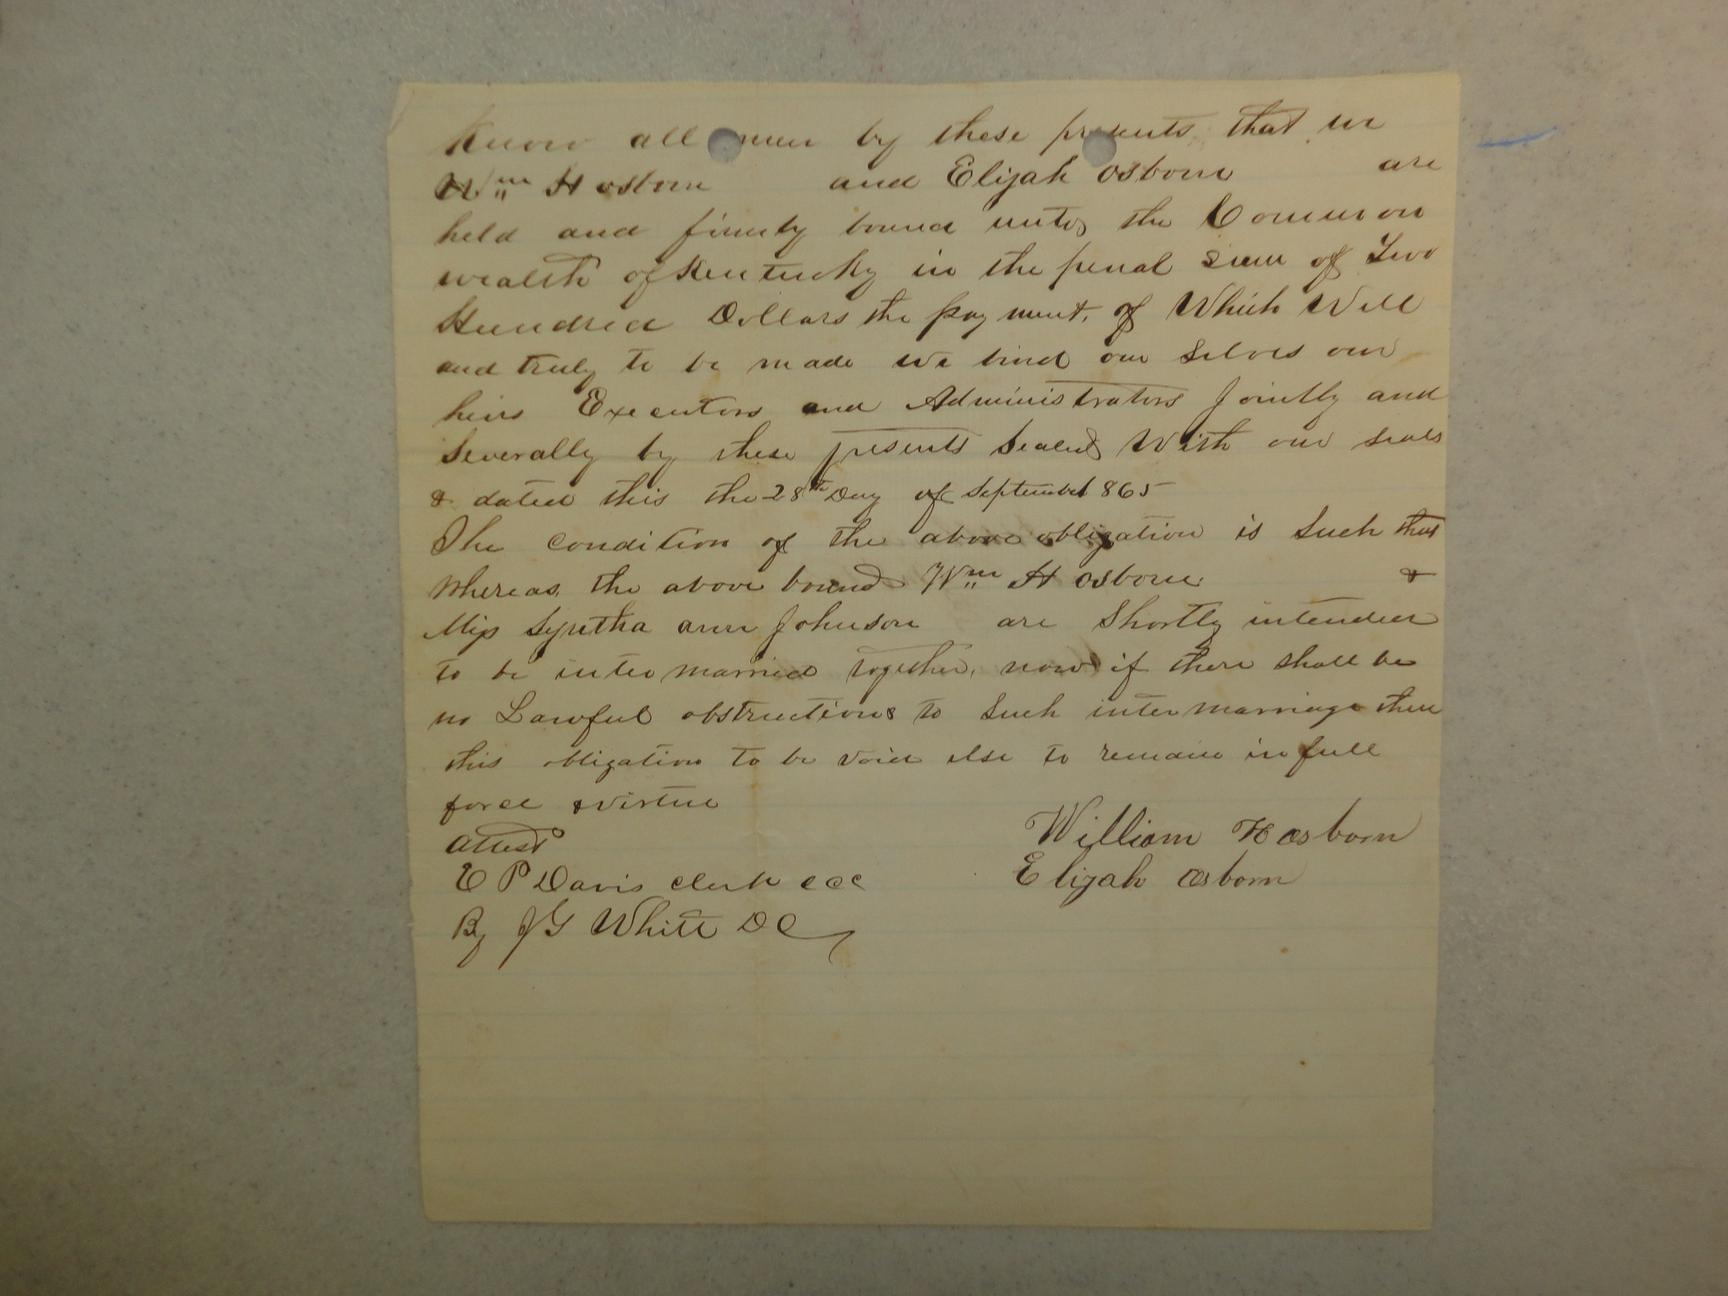 Know all men by these presents that we
Wm H osborn and Elijah osborn are
held and firmly bound unto the Common
wealth of Kentucky in the penal sum of Two
Hundred Dollars the pay ment, of Which Well
and truly to be made we bind our selves our
heirs Executors and Administrators Jointly and
Severally by these presents Sealed With our seals
& dated this the 28th Day of September 865
The condition of the above obligation is Such that
Whereas, the above bound Wm H osborn &
Miss Syntha ann Johnson are Shortly intended
to be inter married together, now if there shall be
no Lawful obstructions to Such inter marriage then
this obligation to be void else to remain in full
force & virtue
attest
William H osborn
E P Davis clerk ccc
Elijah osborn
By JG White DC